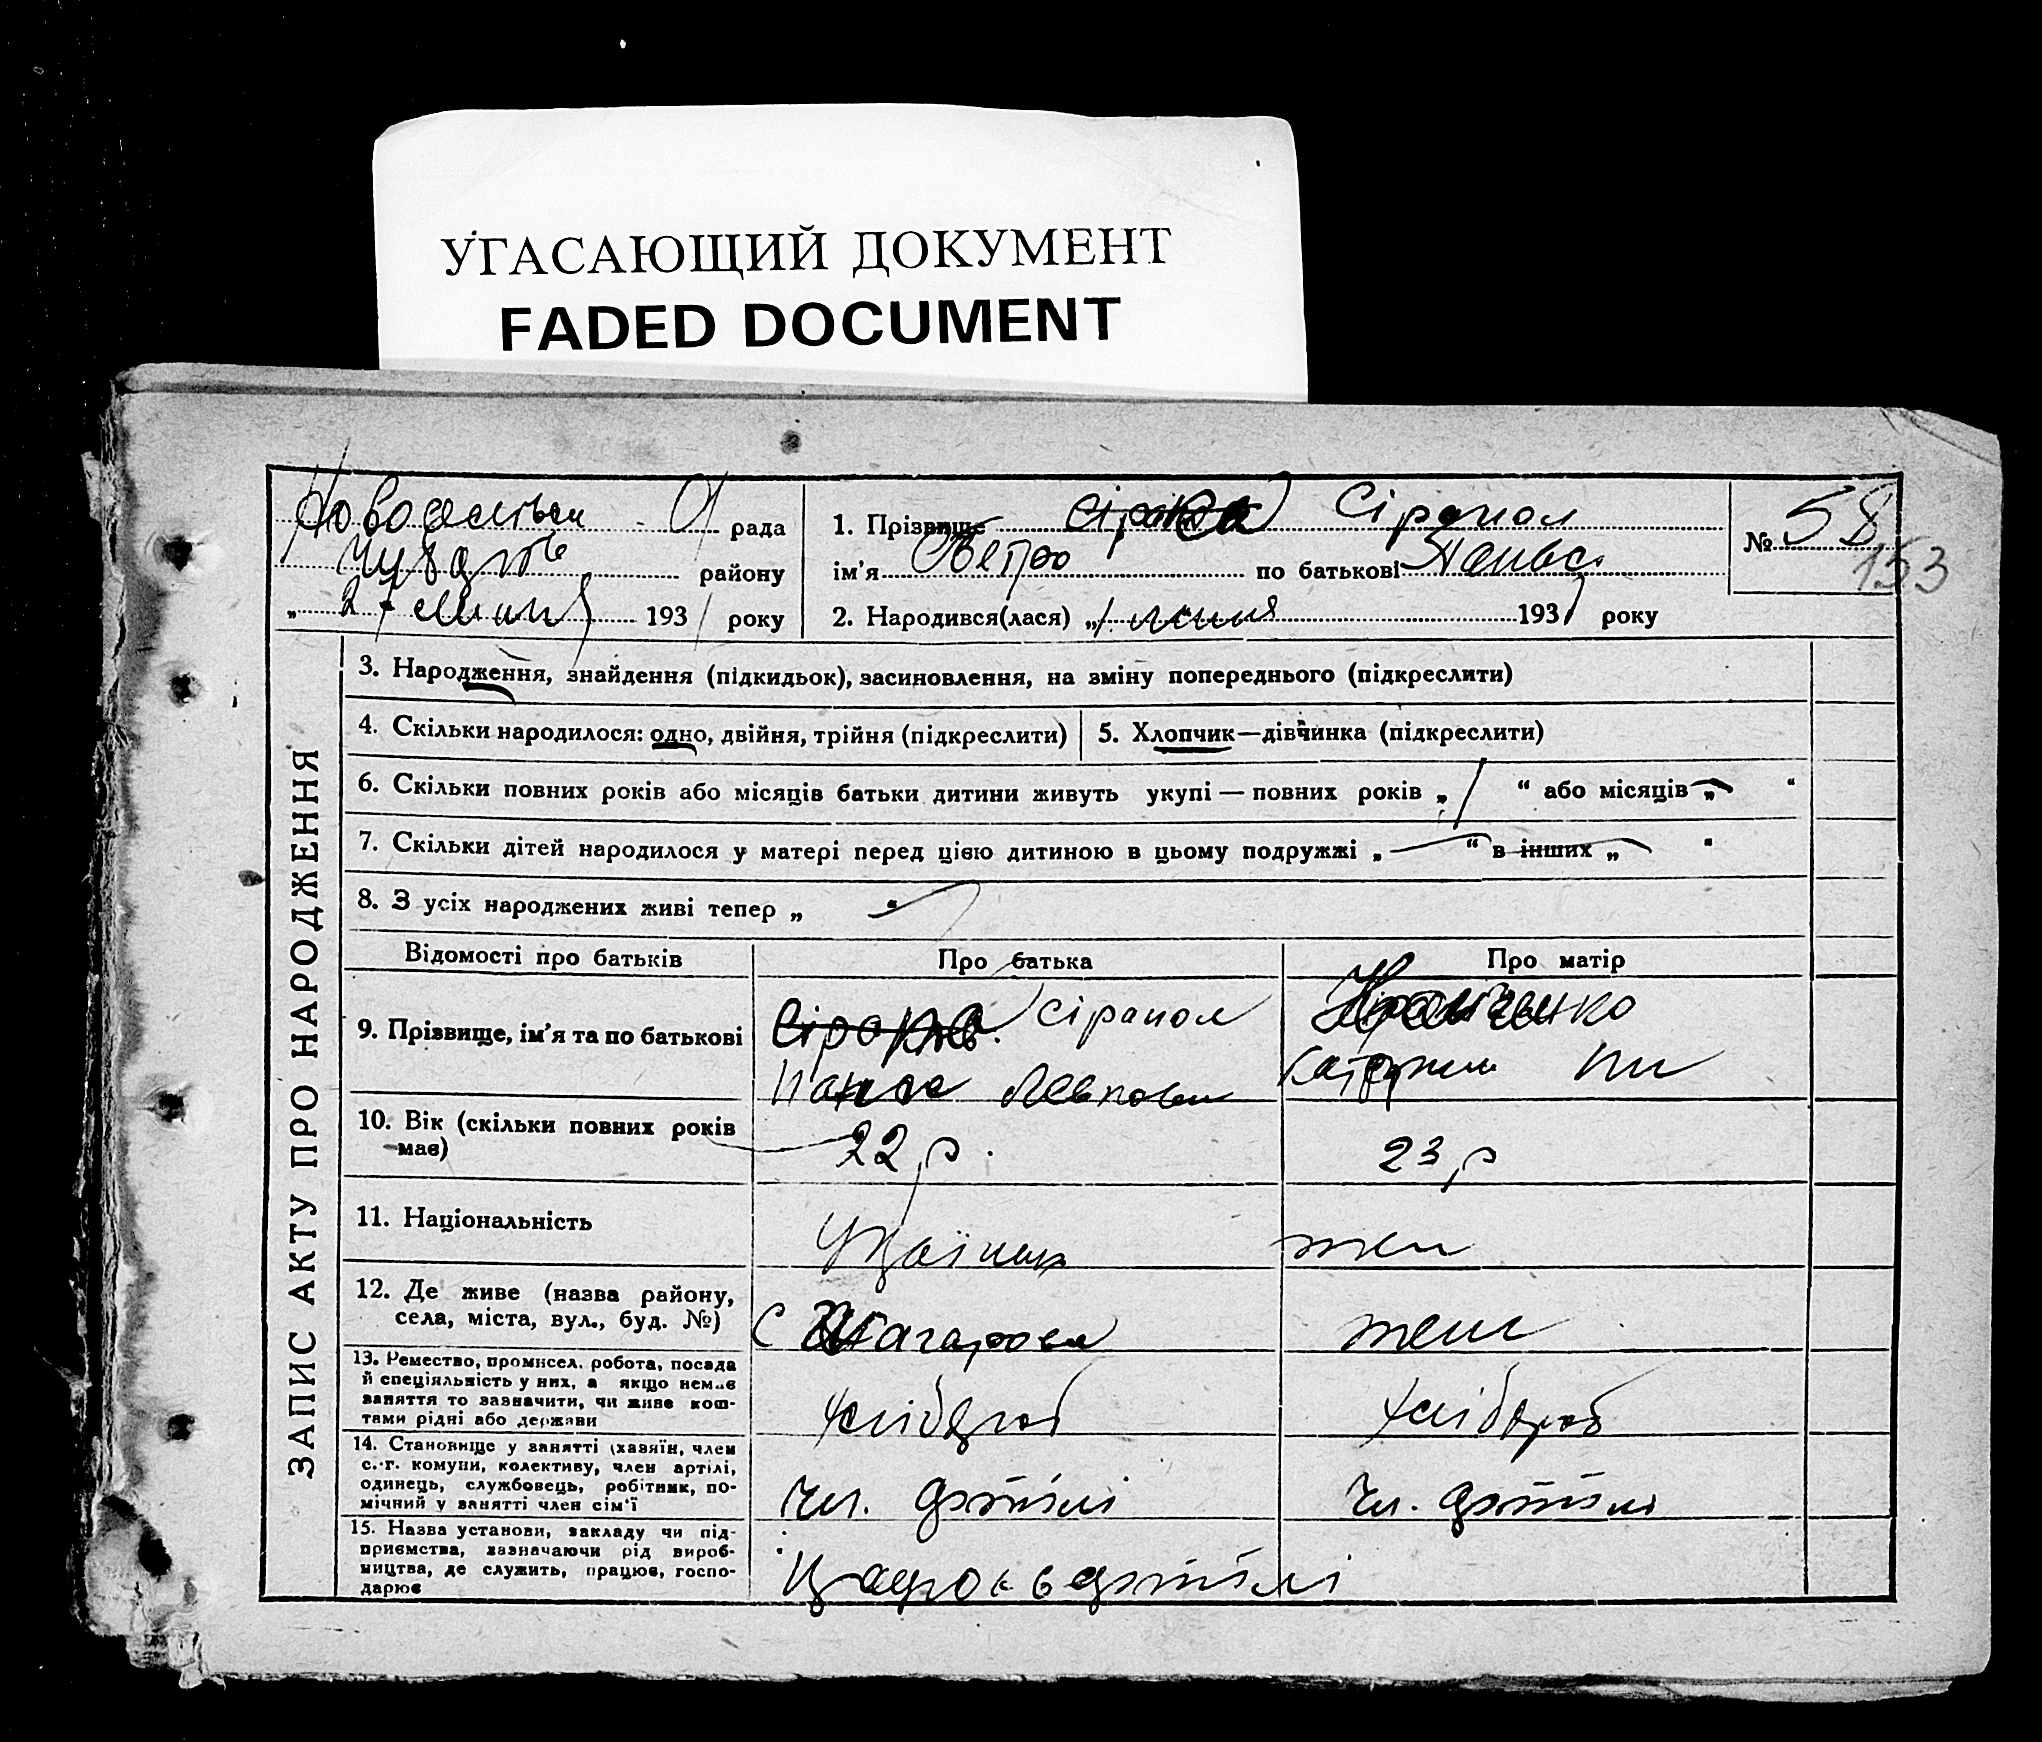 УГАСАЮЩИЙ ДОКУМЕНТ
FADED DOCUMENT
рада
району
„ 27 липня 1931 року
1. Прізвище Сіропол
ім'я Петро по батькові
2. Народився(лася) „ 1 липня 1931 року
№ 58
153
ЗАПИС АКТУ ПРО НАРОДЖЕННЯ
3. Народження, знайдення (підкидьок), засиновлення, на зміну попереднього (підкреслити)
4. Скільки народилося: одно, двійня, трійня (підкреслити)
5. Хлопчик—дівчинка (підкреслити)
6. Скільки повних років або місяців батьки дитини живуть укупі — повних років „ 1 “ або місяців „ — “
7. Скільки дітей народилося у матері перед цією дитиною в цьому подружжі „ — “ в інших „ — “
8. З усіх народжених живі тепер „ — “
Відомості про батьків
Про батька
Про матір
9. Прізвище, ім'я та по батькові
Сіропол
10. Вік (скільки повних років
має)
22 р.
23 р
11. Національність
Українец
12. Де живе (назва району,
села, міста, вул., буд. №)
с
13. Ремество, промисел, робота, посада
й спеціяльність у них, а якщо немає
заняття то зазначити, чи живе кош-
тами рідні або держави
хлібороб
хлібороб
14. Становище у занятті (хазяїн, член
с.-г. комуни, колективу, член артілі,
одинець, службовець, робітник, по-
мічний у занятті член сім'ї
чл. артілі
чл. артілі
15. Назва установи, закладу чи під-
приємства, зазначаючи рід вироб-
ництва, де служить, працює, госпо-
дарює
в артілі